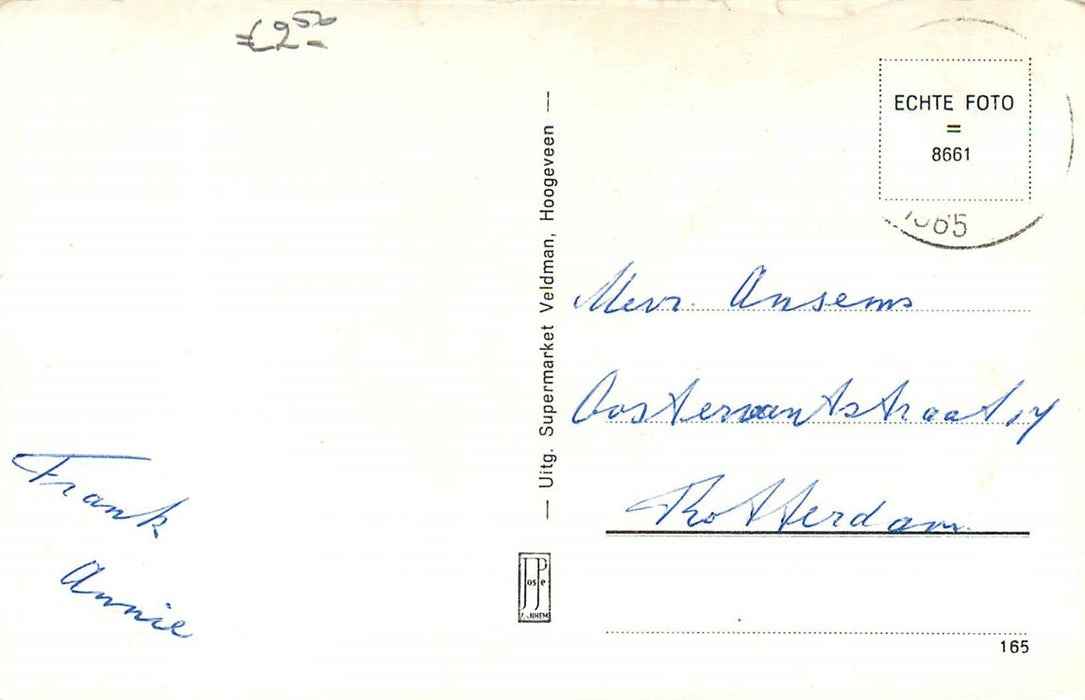 £2 50
ECHTE FOTO
=
8661
1965
— Uitg. Supermarket Veldman, Hoogeveen —
Mevr. Ansems
Oostervantstraat 17
Rotterdam
Frank
Annie
JosPé
ARNHEM
165